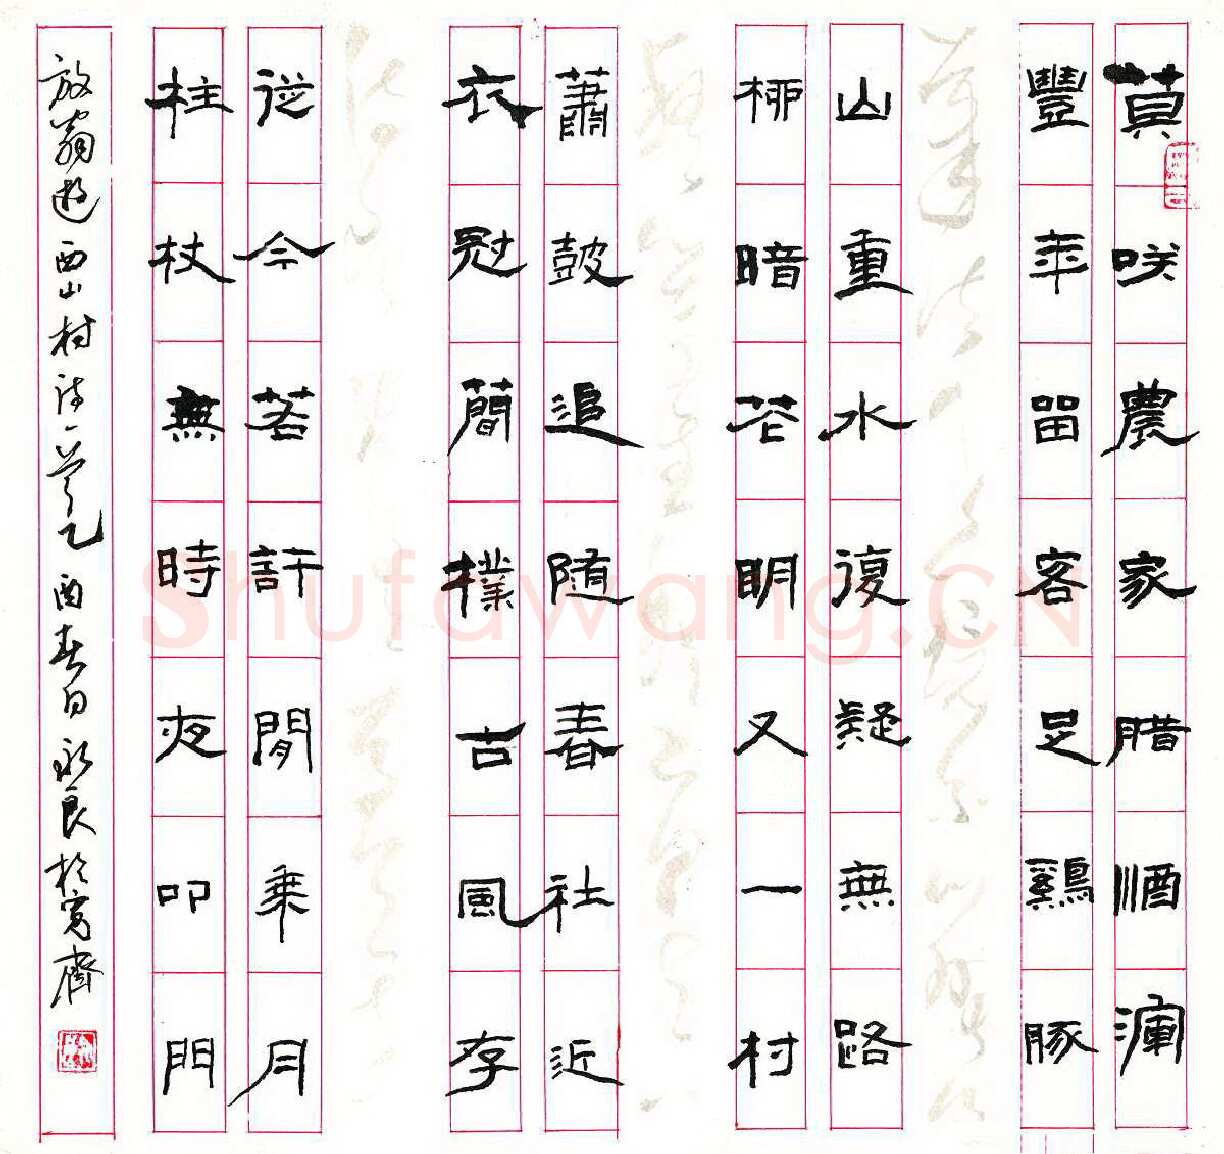 莫咲農家腊酒渾
豐年留客足鷄豚
山重水復疑無路
柳暗花明又一村
蕭鼓追随春社近
衣冠簡樸古風存
從今若許閒乘月
柱杖無時夜叩門
放翁遊西山村詩一首乙酉春日永良於寬齋
Shufawang.CN